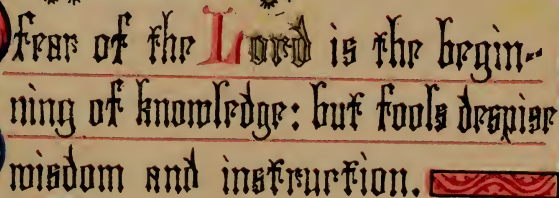 fear of the Lord is the begin-
ning of knowledge: but fools despise
wisdom and instruction.